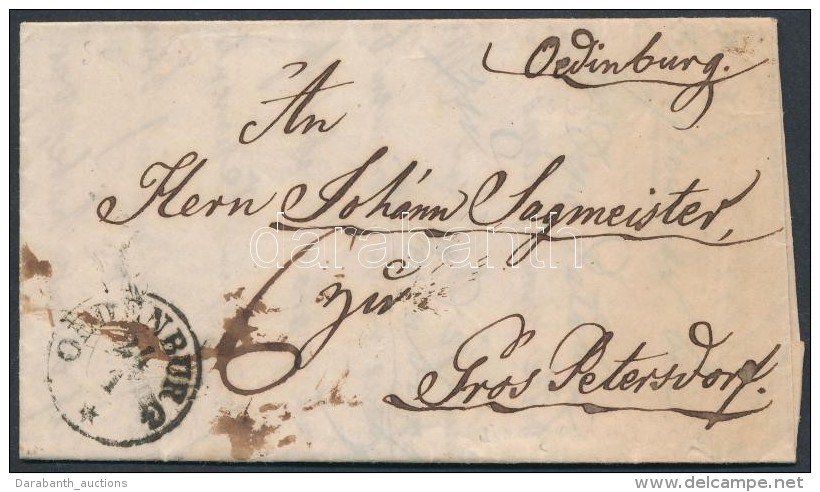 Oedinburg.
An
Herrn Johánn Sagmeister,
6 zu
Gros Petersdorf.
OEDENBURG
darabanth
Darabanth_auctions
www.delcampe.net